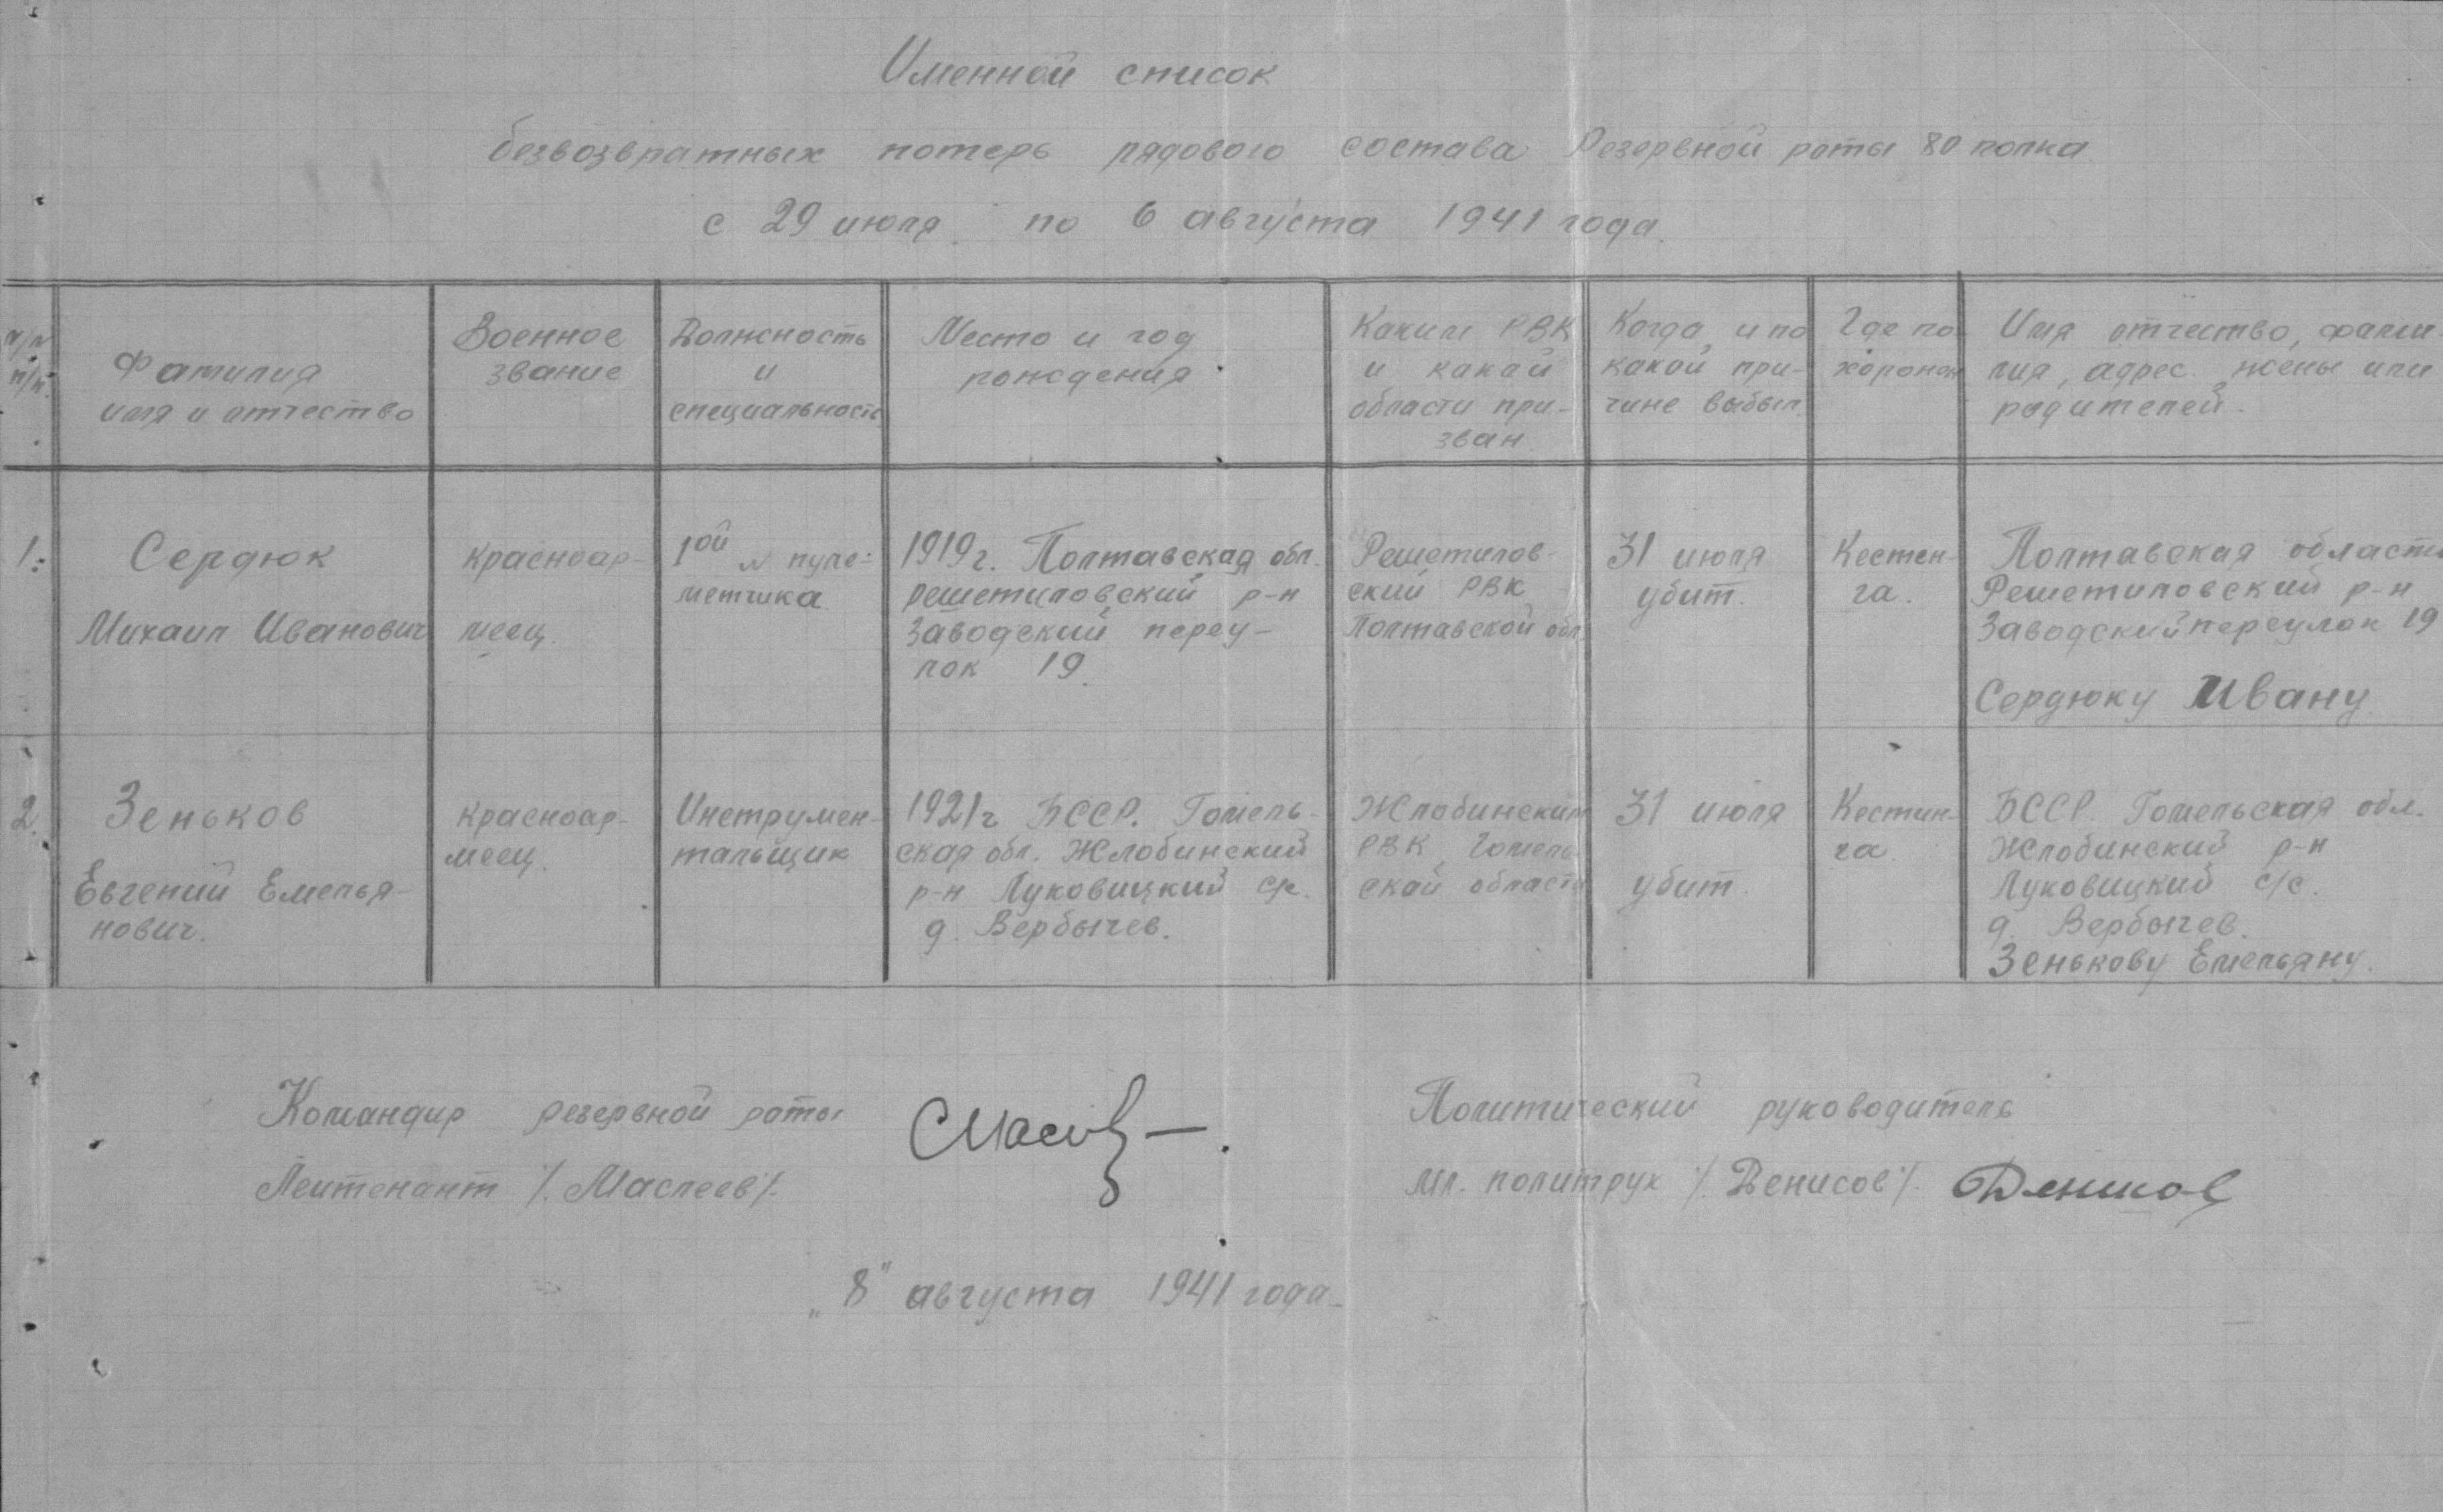 Именной список
безвозвратных потерь рядового состава Резервной роты 80 полка
с 29 июля по 6 августа 1941 года.
п/п
Фатилия
имя и отчество
Военное
звание
Должность
и
специальность
Место и год
рождения
Каким РВК
и какой
области при-
зван
Когда и по
какой при-
чине выбыл
Где по-
хоронен
Имя отчество, фами-
лия, адрес жены или
родителей.
1.
Сердюк
Михаил Иванович
Красноар-
меец.
1ой № пуле-
метчика
1919 г. Полтавская обл.
Решетиловский р-н
Заводский переу-
лок 19.
Решетилов-
ский РВК
Полтавской обл.
31 июля
убит.
Кестен-
га.
Полтавская область
Решетиловский р-н
Заводский переулок 19
Сердюку Ивану
2.
Зеньков
Евгений Емелья-
нович.
Красноар-
меец.
Инструмен-
тальщик
1921 г БССР. Гомель-
ская обл. Жлобинский
р-н Луковицкий с/с.
д. Вербычев.
Жлобинским
РВК, Гомель-
ской области
31 июля
убит.
Кестин-
га.
БССР. Гомельская обл.
Жлобинский р-н
Луковицкий с/с.
д. Вербычев.
Зенькову Емельяну.
Командир резервной роты
Леитенант /. Маслеев /.
Политический руководитель
мл. политрук /. Денисов /. Денисов
„8" августа 1941 года.